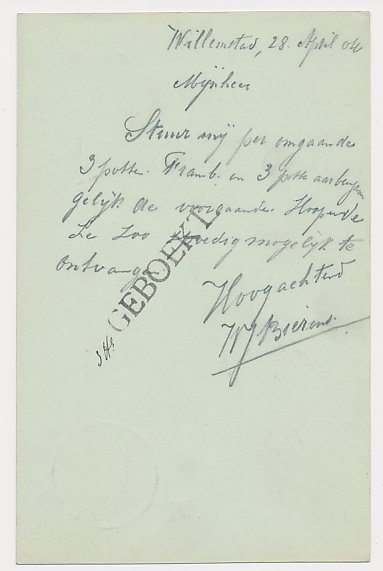 Willemstad, 28 April 04
Mijnheer
Stuur mij per omgaande
3 potte Framb. en 3 potte aarbeyen
gelijk de voorgaande Hoopende
ze zoo spoedig mogelijk te
ontvange
Hoogachtend
W Bierens
GEBOEKT